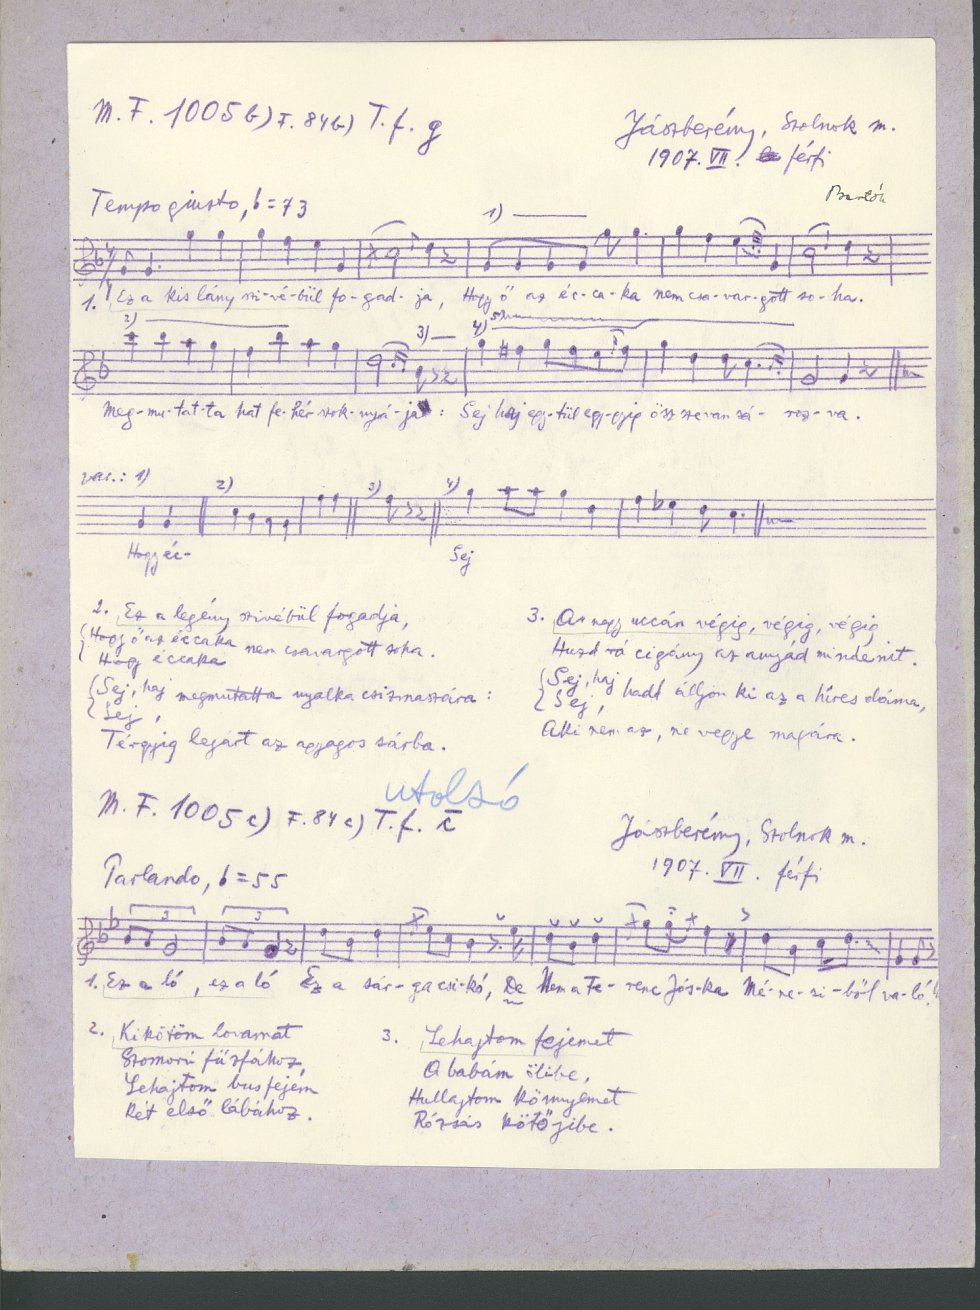 M. F. 1005 b) F. 84 b) T. f. g
Jászberény, Szolnok m.
1907. VII. férfi
Bartók
Tempo giusto, = 73
1)
1. Ez a kis lány szi-vé-bül fo-gad-ja, Hogy ő az éc-ca-ka nem csa-var-gott so-ha.
2) 3) 4)
Meg-mu-tat-ta hat fe-hér szok-nyá-ja: Sej haj egy-tül egy-gyig össze van sá-roz-va.
var.: 1) 2) 3) 4)
Hogy éc- Sej
2. Ez a legény szivébül fogadja,
Hogy ő az éccaka nem csavargott soha.
Hogy éccaka
Sej, haj megmutatta nyalka csizmaszára:
Sej,
Térgyig lejárt az agyagos sárba.
3. Az nagy uccán végig, végig, végig
Huzd rá cigány az anyád mindenit.
Sej, haj hadd álljon ki az a híres dáma,
Sej,
Aki nem az, ne vegye magára.
utolsó
M. F. 1005 c) F. 84 c) T. f. c̄
Jászberény, Szolnok m.
1907. VII. férfi
Parlando, = 55
3 3
1. Ez a ló, ez a ló Ez a sár-ga csi-kó, De Nem a Fe-renc Jós-ka Mé-ne-si-ből va-ló!
2. Kikötöm lovamat
Szomorú fűzfához,
Lehajtom bús fejem
Két első lábához.
3. Lehajtom fejemet
A babám ölibe,
Hullajtom könnyemet
Rózsás kötőjibe.